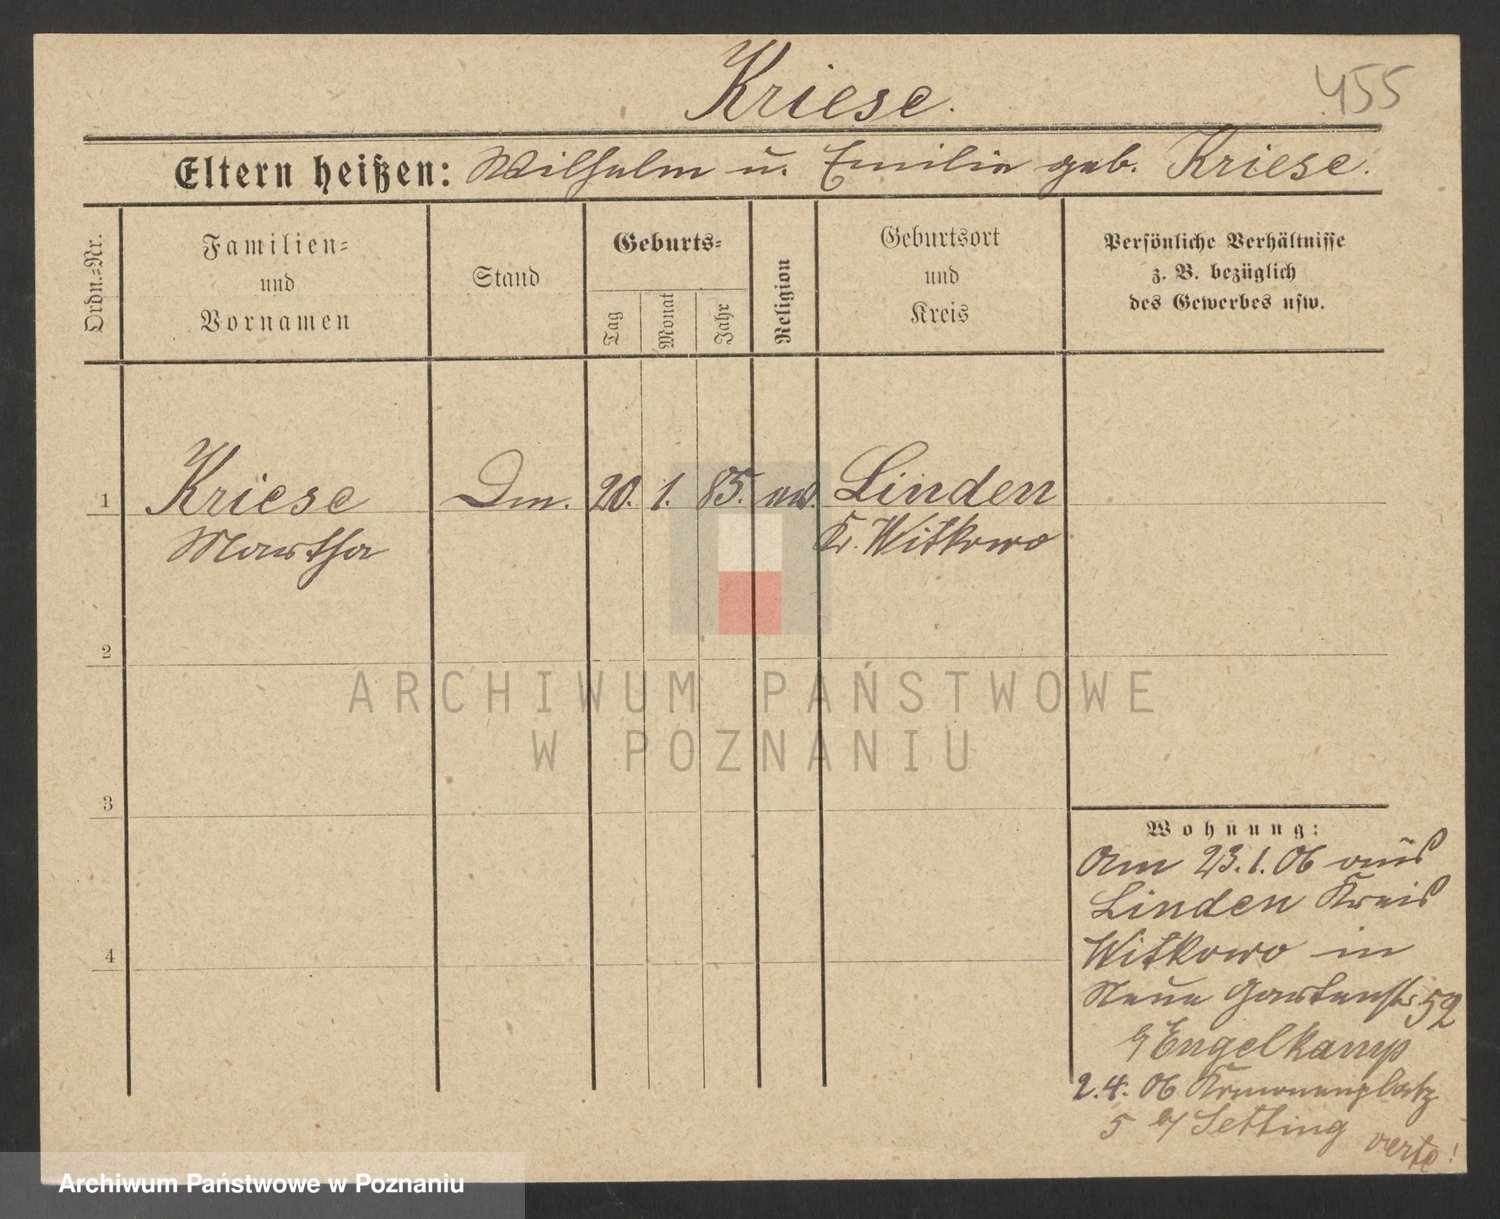 Kriese.
455
Eltern heißen: Wilhelm u. Emilie geb. Kriese.
Ordn.-Nr.
Familien-
und
Vornamen
Stand
Geburts-
Tag
Monat
Jahr
Religion
Geburtsort
und
Kreis
Persönliche Verhältnisse
z. B. bezüglich
des Gewerbes usw.
1 Kriese Dm. 20. 1. 85. ev. Linden
Martha Kr. Witkowo
2
3
4
Wohnung:
Am 23.1.06 aus
Linden Kreis
Witkowo in
Neue Gartenstr. 52
b/ Engelkamp
2.4.06
5 b/ Setting verte!
ARCHIWUM PAŃSTWOWE
W POZNANIU
Archiwum Państwowe w Poznaniu